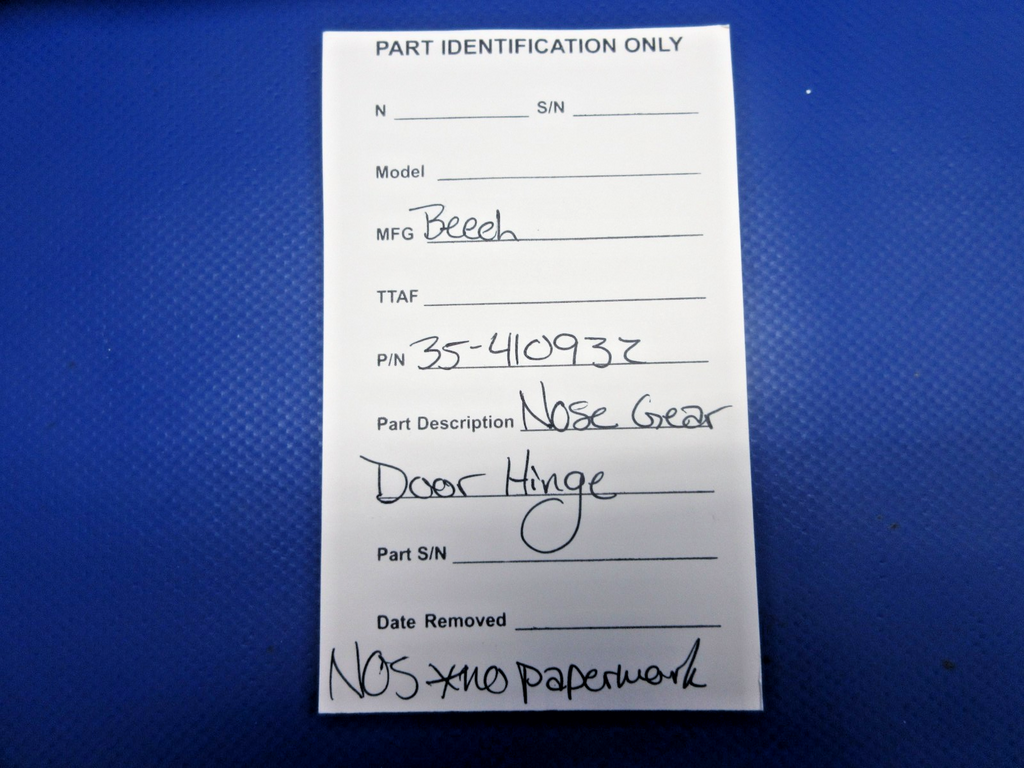 PART IDENTIFICATION ONLY
N ____________ S/N ____________
Model ____________
MFG Beech
TTAF ____________
P/N 35-410932
Part Description Nose Gear
Door Hinge
Part S/N ____________
Date Removed ____________
NOS *no paperwork